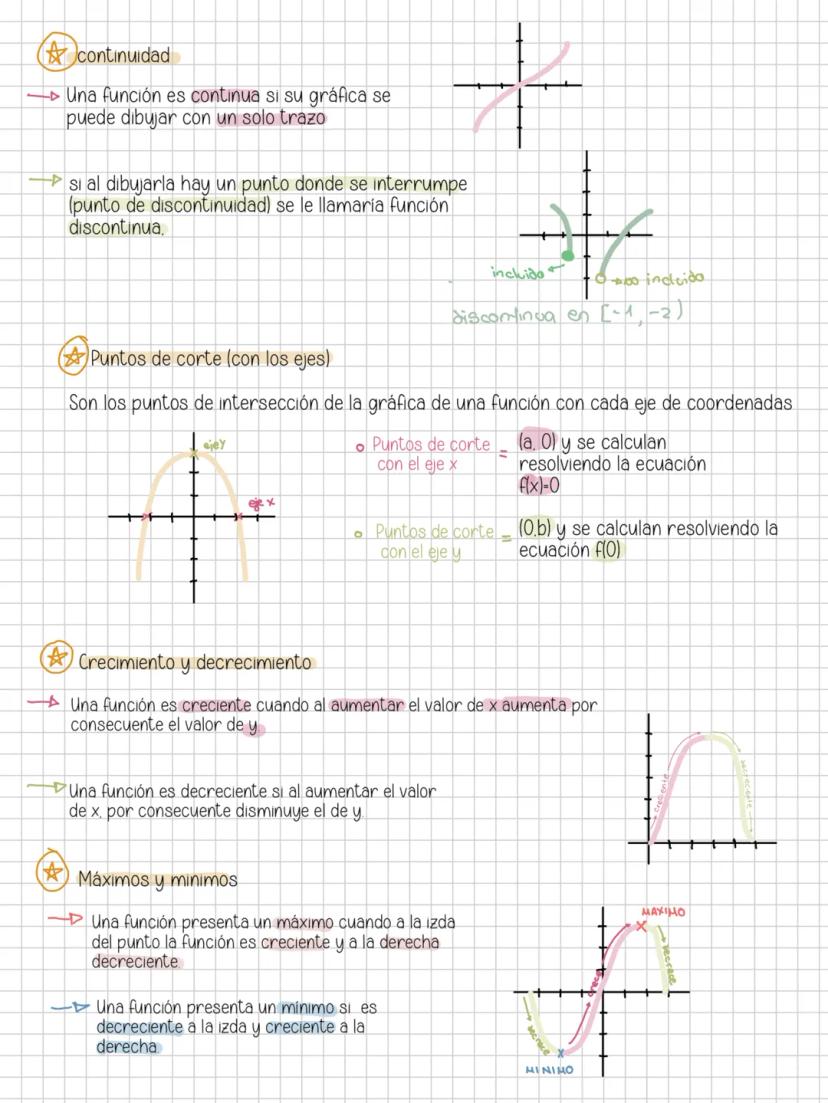 continuidad
Una función es continua si su gráfica se
puede dibujar con un solo trazo
si al dibujarla hay un punto donde se interrumpe
(punto de discontinuidad) se le llamaría función
discontinua.
incluido
no incluido
discontinua en [-1, -2)
Puntos de corte (con los ejes)
Son los puntos de intersección de la gráfica de una función con cada eje de coordenadas
eje y
eje x
Puntos de corte
con el eje x
=
(a, 0) y se calculan
resolviendo la ecuación
f(x)=0
Puntos de corte
con el eje y
=
(0,b) y se calculan resolviendo la
ecuación f(0)
Crecimiento y decrecimiento
Una función es creciente cuando al aumentar el valor de x aumenta por
consecuente el valor de y
creciente
decreciente
Una función es decreciente si al aumentar el valor
de x, por consecuente disminuye el de y.
Máximos y minimos
Una función presenta un máximo cuando a la izda
del punto la función es creciente y a la derecha
decreciente.
MAXIMO
crece
decrece
decrece
MINIMO
Una función presenta un mínimo si es
decreciente a la izda y creciente a la
derecha.